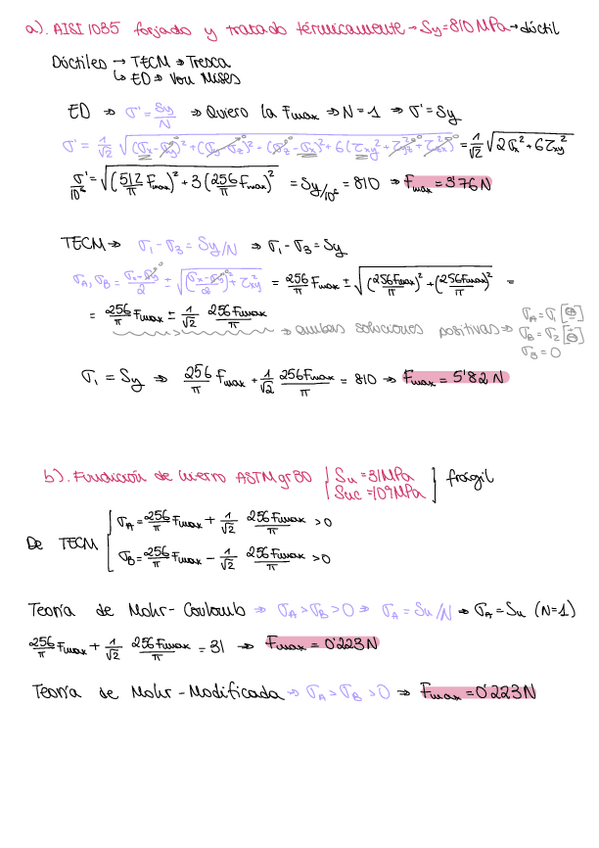 a). AISI 1035 forjado y tratado térmicamente → Sy = 810 MPa → dúctil
Dúctiles → TECM ⇒ Tresca
↳ ED ⇒ Von Mises
ED ⇒ σ' = Sy/N ⇒ Quiero la Fmax ⇒ N = 1 ⇒ σ' = Sy
σ' = 1/√2 √((σx - σy)² + (σy - σz)² - (σz - σx)² + 6(τxy² + τyz² + τzx²)) = 1/√2 √(2σx² + 6τxy²)
σ'/10⁶ = √((512/π Fmax)² + 3(256/π Fmax)²) = Sy/10⁶ = 810 ⇒ Fmax = 3'76 N
TECM ⇒ σ1 - σ3 = Sy/N ⇒ σ1 - σ3 = Sy
σA, σB = (σx - σy)/2 ± √(((σx - σy)/2)² + τxy²) = 256/π Fmax ± √((256Fmax/π)² + (256Fmax/π)²) =
= 256/π Fmax ± 1/√2 256Fmax/π
⇒ ambas soluciones positivas ⇒ σA = σ1 [⊕]
σB = σ2 [⊕]
σ3 = 0
σ1 = Sy ⇒ 256/π Fmax + 1/√2 256Fmax/π = 810 ⇒ Fmax = 5'82 N
b). Fundición de hierro ASTM gr 30 { Su = 31MPa
Suc = 109MPa ] frágil
De TECM { σA = 256/π Fmax + 1/√2 256Fmax/π > 0
σB = 256/π Fmax - 1/√2 256Fmax/π > 0
Teoría de Mohr-Coulomb ⇒ σA > σB > 0 ⇒ σA = Su/N ⇒ σA = Su (N=1)
256/π Fmax + 1/√2 256Fmax/π = 31 ⇒ Fmax = 0'223 N
Teoría de Mohr-Modificada ⇒ σA > σB > 0 ⇒ Fmax = 0'223 N